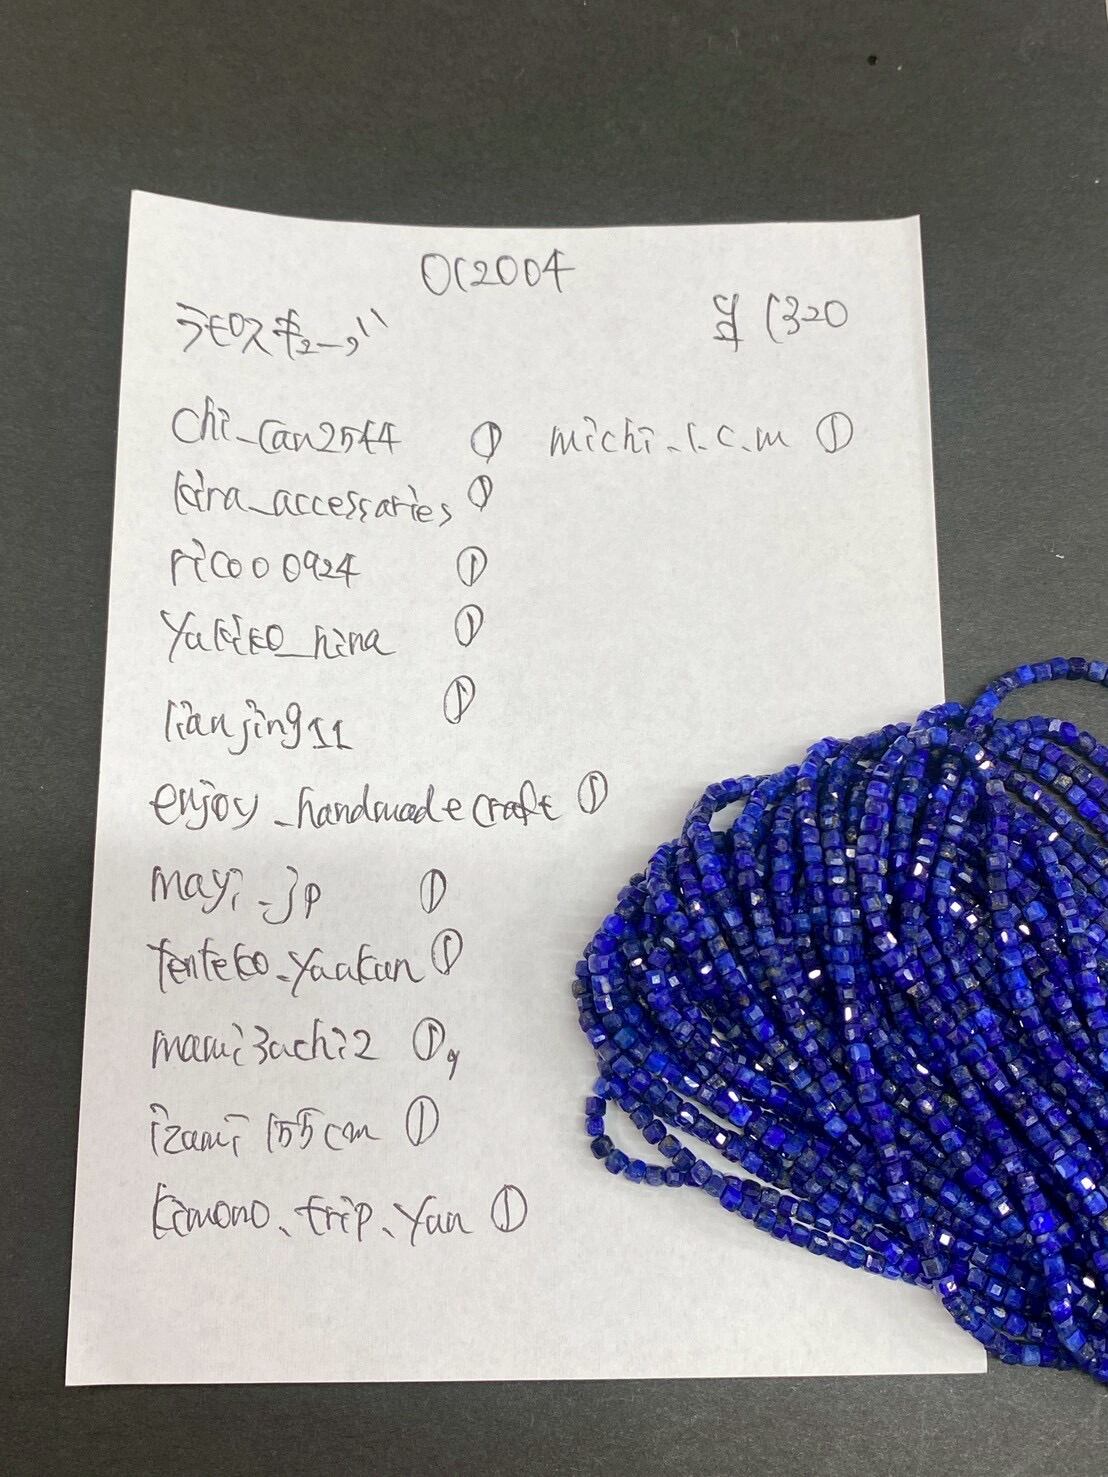 OC2004
ラモスキューブ
1320
chi_can2544 ① michi.1.c.m ①
kira_accessaries ①
ricooo0924 ①
yukiko_hina ①
lianjing11 ①
enjoy_handmadecraft ①
mayi_jp ①
tenteko.yuukun ①
mami3achi2 ①
izumi155cm ①
kimono.trip.yun ①